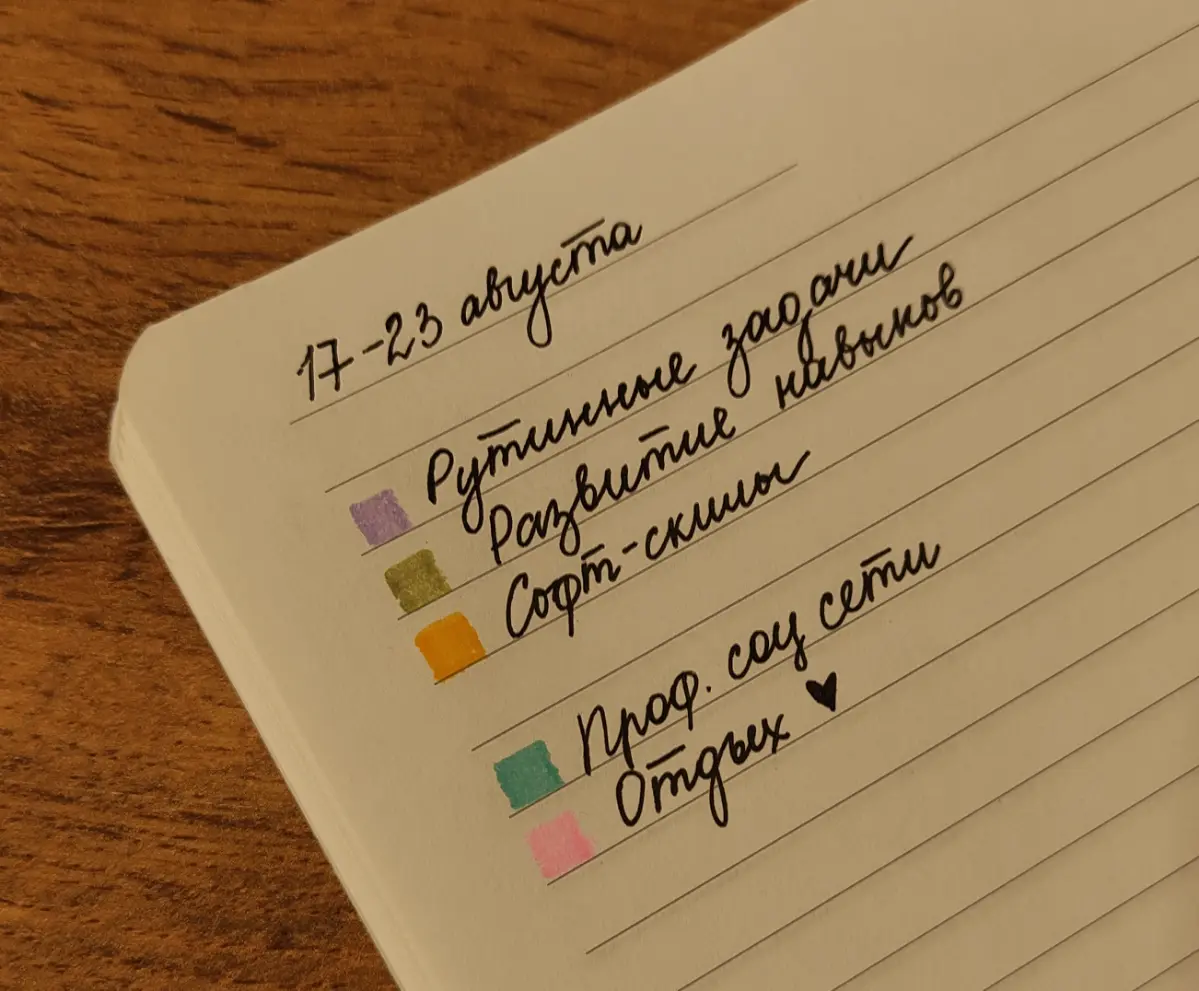 17-23 августа
Рутинные задачи
Развитие навыков
Софт-скиллы
Проф. соц сети
Отдых ♥